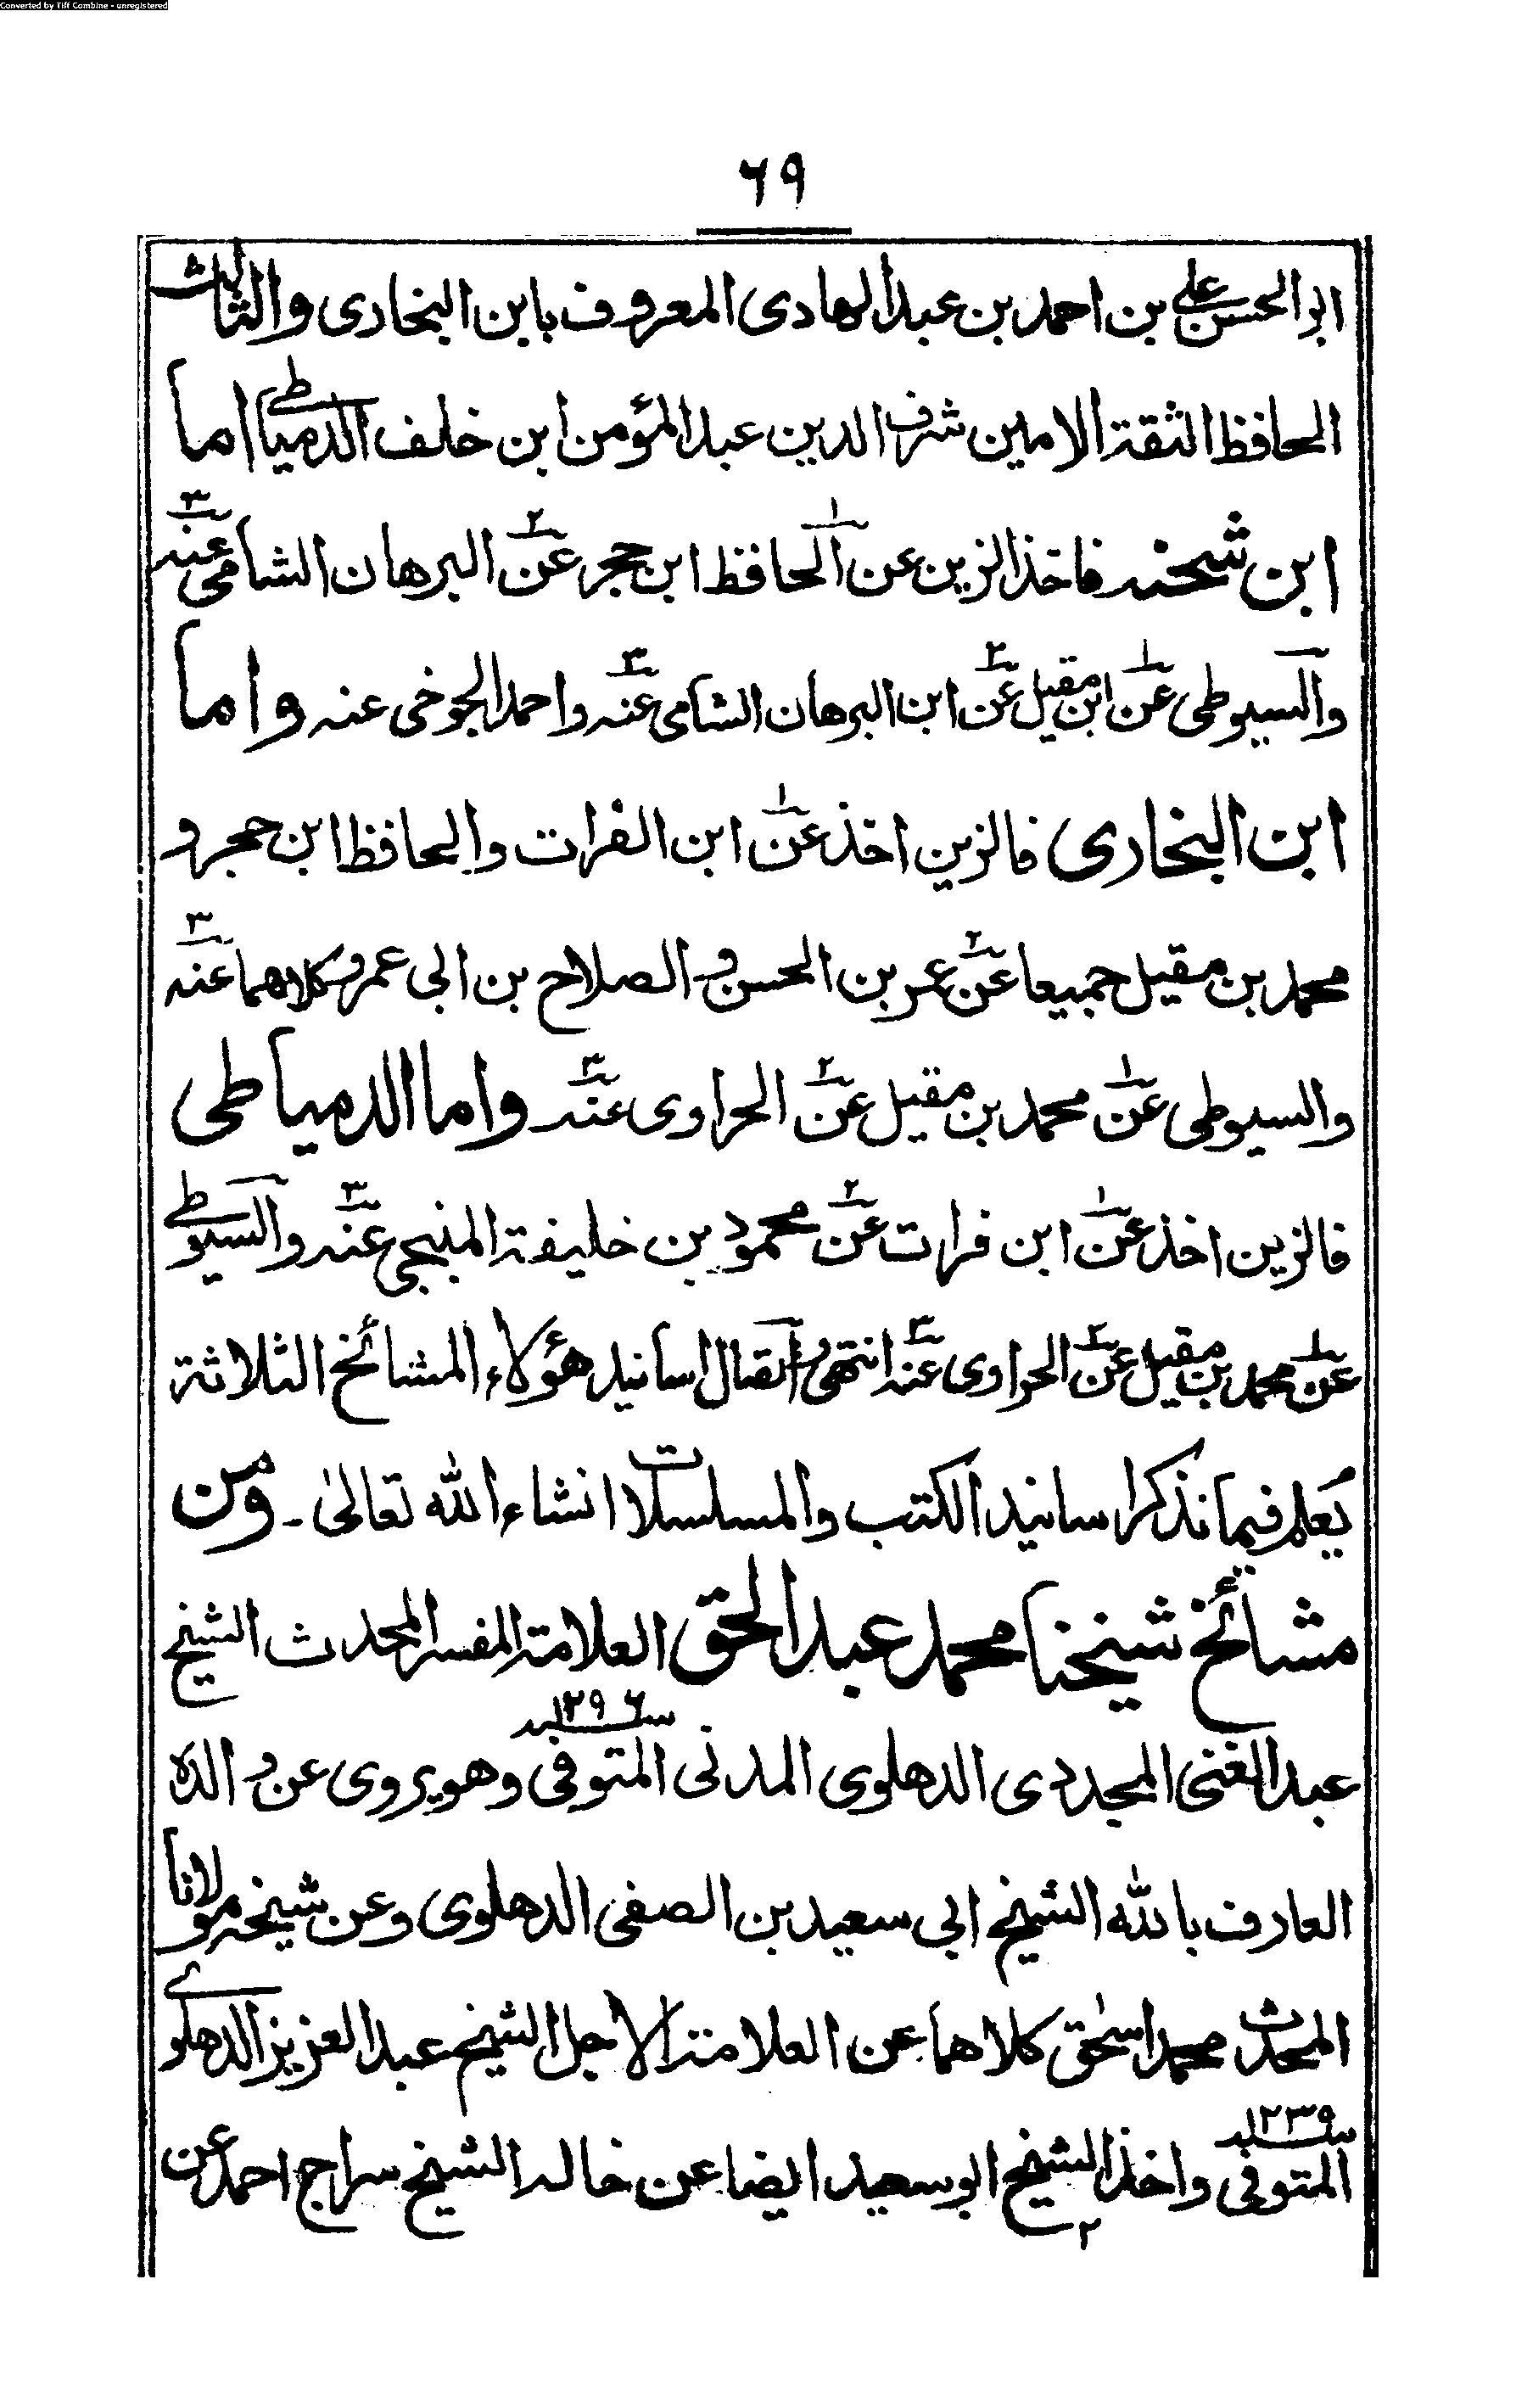 Converted by Tiff Combine - unregistered
٦٩
ابو الحسن علی بن احمد بن عبد الهادی المعروف بابن البخاری والثالث
الحافظ الثقة الامین شرف الدین عبد المؤمن ابن خلف الدمیاطی اما
ابن شحنه فاخذ الزین عن ١ الحافظ ابن حجر عن ٢ البرهان الشامی عنه ٣
والسیوطی عن ١ ابن مقبل عن ٢ ابن البرهان الشامی عنه ٣ واحمد الجوخی عنه واما
ابن البخاری فالزین اخذ عن ١ ابن الفرات والحافظ ابن حجر و
محمد بن مقبل جمیعا عن ٢ عمر بن الحسن و الصلاح بن ابی عمر و کلاهما عنه ٣
والسیوطی عن ١ محمد بن مقبل عن ٢ الحراوی عنه ٣ واما الدمیاطی
فالزین اخذ عن ١ ابن فرات عن ٢ محمود بن خلیفة المنبجی عنه ٣ والسیوطی
عن ١ محمد بن مقبل عن ٢ الحراوی عنه ٣ انتهی و اتصال اسانید هؤلاء المشائخ الثلاثة
یعلم فیما نذکر اسانید الکتب والمسلسلات انشاء الله تعالیٰ ۔ ومن
مشائخ شیخنا محمد عبد الحق العلامة المفسر المحدث الشیخ
عبد الغنی المجددی الدهلوی المدنی المتوفی سنه ١٢٩٦ وهو یروی عن والده
العارف بالله الشیخ ابی سعید بن الصفی الدهلوی وعن شیخه مولانا
المحدث محمد اسحٰق کلاهما عن العلامة الاجل الشیخ عبد العزیز الدهلوی
المتوفی سنه ١٢٣٩ واخذ الشیخ ابو سعید ایضا عن خاله الشیخ سراج احمد عن
٢